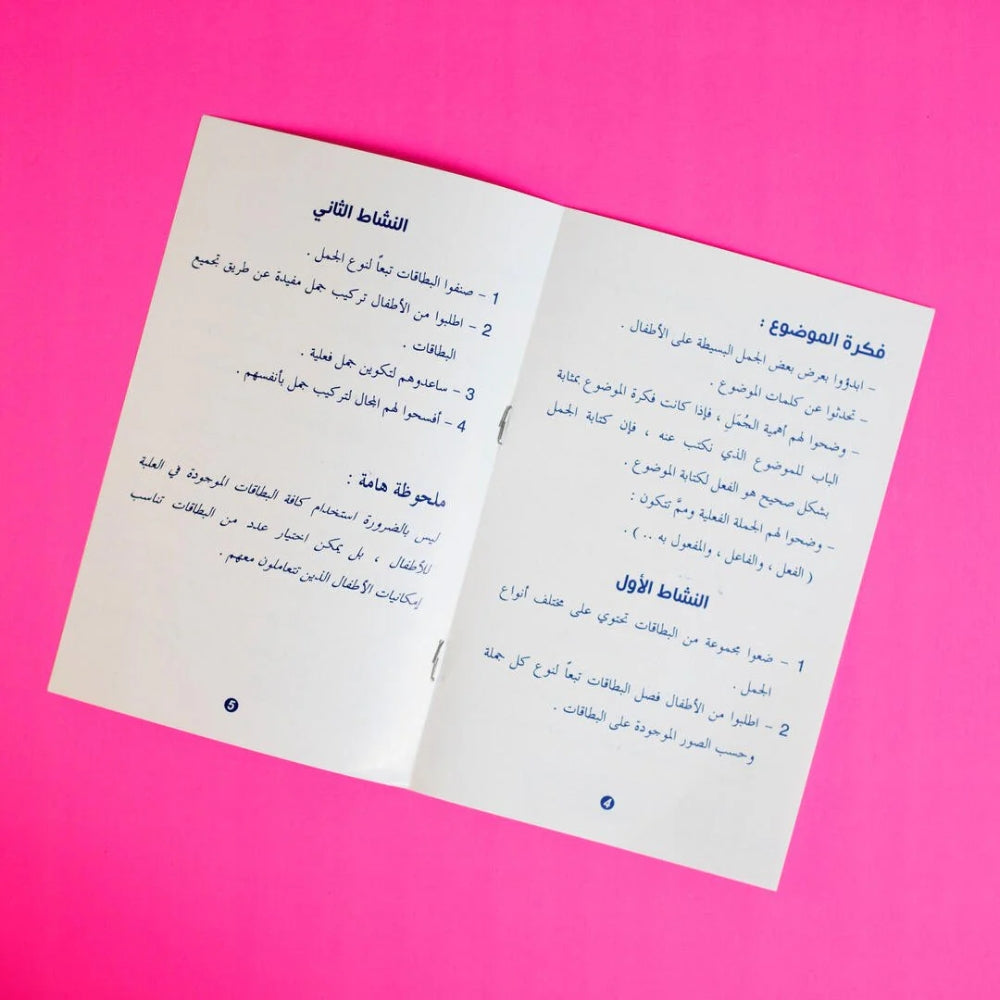 فكرة الموضوع :
- ابدؤوا بعرض بعض الجمل البسيطة على الأطفال .
- تحدثوا عن كلمات الموضوع .
- وضحوا لهم أهمية الجُمَل ، فإذا كانت فكرة الموضوع بمثابة
الباب للموضوع الذي نكتب عنه ، فإن كتابة الجمل
بشكل صحيح هو الفعل لكتابة الموضوع .
- وضحوا لهم الجملة الفعلية وممَّ تتكون :
( الفعل ، والفاعل ، والمفعول به .. ) .
النشاط الأول
1 - ضعوا مجموعة من البطاقات تحتوي على مختلف أنواع
الجمل .
2 - اطلبوا من الأطفال فصل البطاقات تبعاً لنوع كل جملة
وحسب الصور الموجودة على البطاقات .
4
النشاط الثاني
1 - صنفوا البطاقات تبعاً لنوع الجمل .
2 - اطلبوا من الأطفال تركيب جمل مفيدة عن طريق تجميع
البطاقات .
3 - ساعدوهم لتكوين جمل فعلية .
4 - أفسحوا لهم المجال لتركيب جمل بأنفسهم .
ملحوظة هامة :
ليس بالضرورة استخدام كافة البطاقات الموجودة في العلبة
للأطفال ، بل يمكن اختيار عدد من البطاقات تناسب
إمكانيات الأطفال الذين تتعاملون معهم .
5